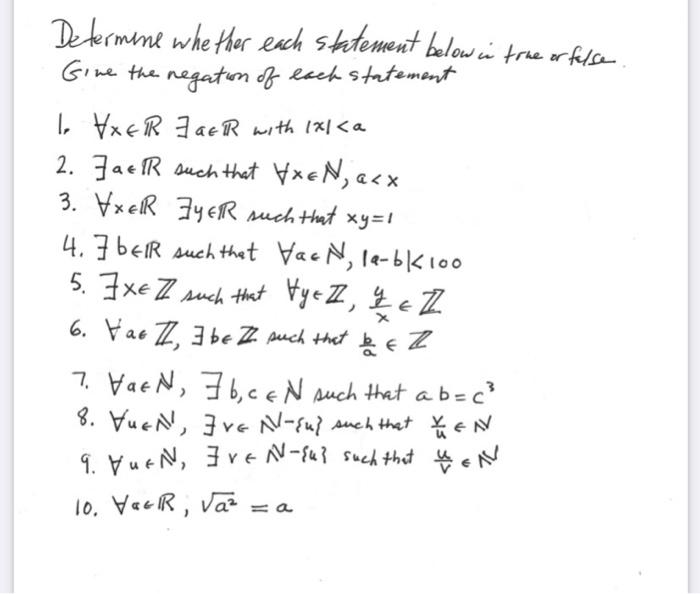 Determine whether each statement below is true or false.
Give the negation of each statement
1. ∀x∈ℝ ∃a∈ℝ with |x|<a
2. ∃a∈ℝ such that ∀x∈ℕ, a<x
3. ∀x∈ℝ ∃y∈ℝ such that xy=1
4. ∃b∈ℝ such that ∀a∈ℕ, |a-b|<100
5. ∃x∈ℤ such that ∀y∈ℤ, y/x ∈ ℤ
6. ∀a∈ℤ, ∃b∈ℤ such that b/a ∈ ℤ
7. ∀a∈ℕ, ∃b,c∈ℕ such that ab=c³
8. ∀u∈ℕ, ∃v∈ℕ-{u} such that v/u ∈ ℕ
9. ∀u∈ℕ, ∃v∈ℕ-{u} such that u/v ∈ ℕ
10. ∀a∈ℝ, √a² = a